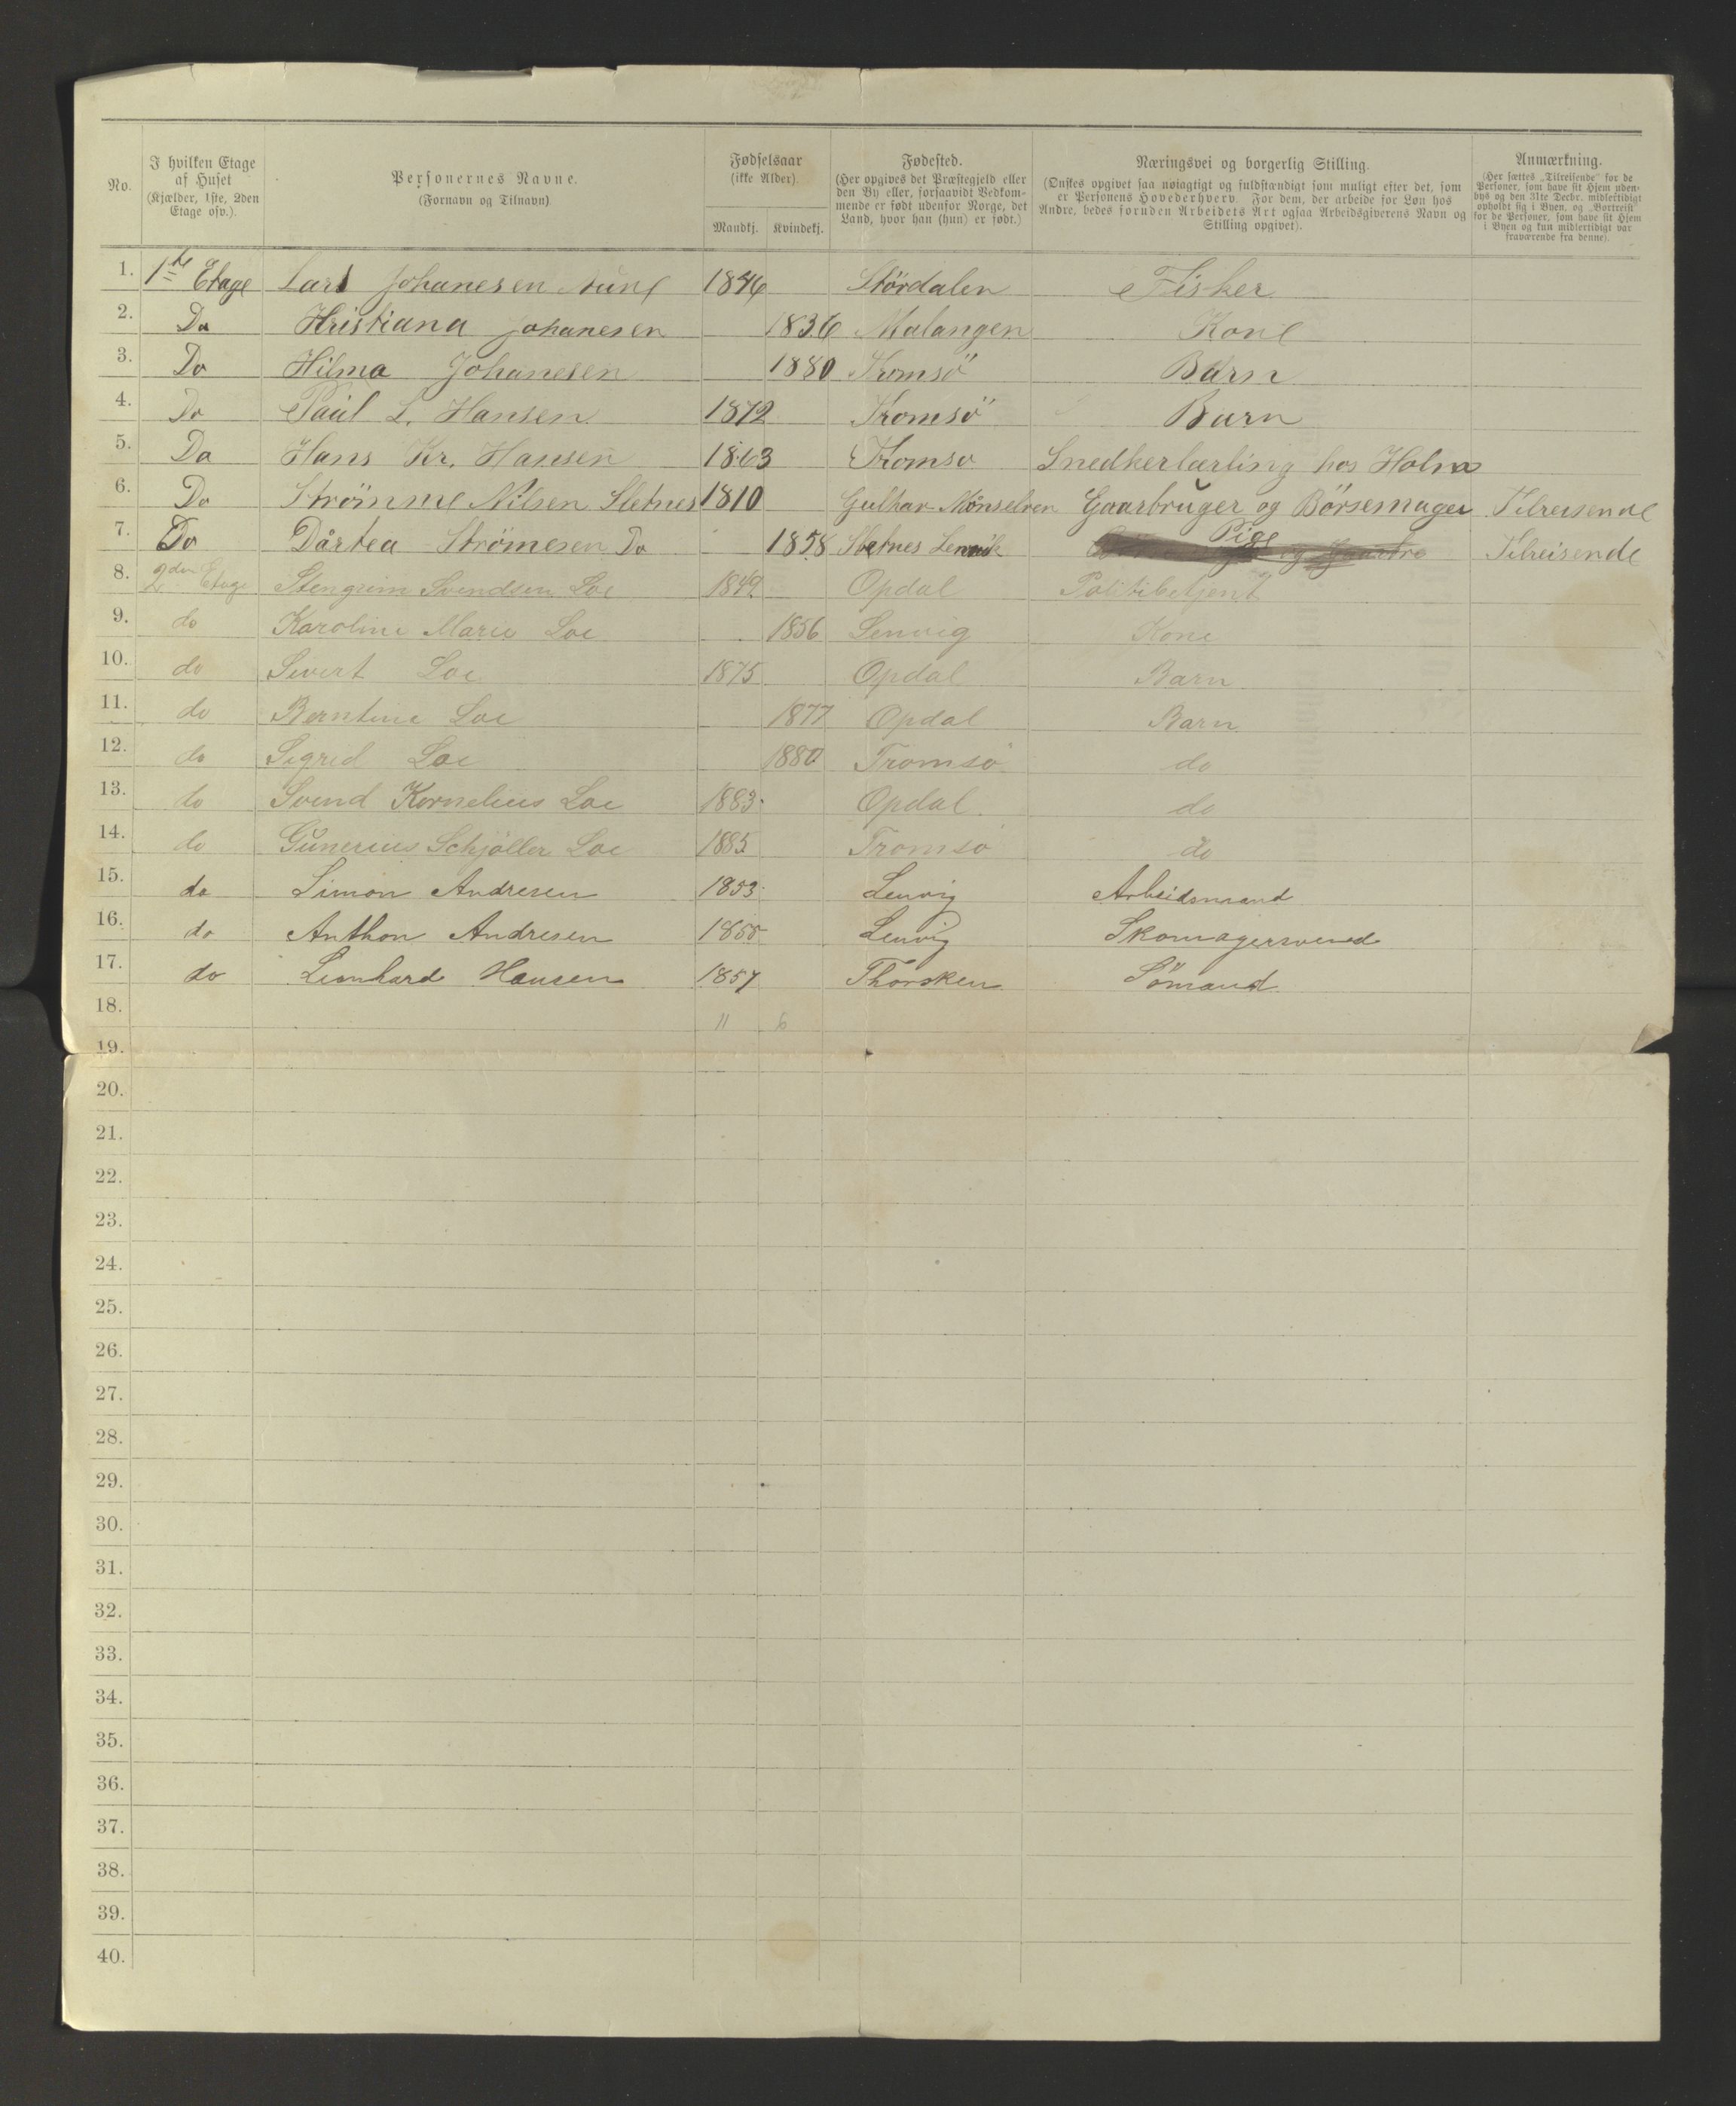 No. I hvilken Etage af Huset (Kjælder, 1ste, 2den Etage osv.). Personernes Navne. (Fornavn og Tilnavn) Fødselsaar (ikke Alder). Mandkj. Kvindekj. Fødested. (Her opgives det Præstegjeld eller den By eller, forsaavidt Vedkommende er født udenfor Norge, det Land, hvor han (hun) er født.) Næringsvei og borgerlig Stilling. (Ønskes opgivet saa nøiagtigt og fuldstændigt som muligt efter det, som er Personens Hovederhverv. For dem, der arbeide for Løn hos Andre, bedes foruden Arbeidets Art ogsaa Arbeidsgiverens Navn og Stilling opgivet). Anmærkning. (Her sættes „Tilreisende" for de Personer, som have sit Hjem udenbys og den 31te Decbr. midlertidigt opholdt sig i Byen, og „Bortreist" for de Personer, som have sit Hjem i Byen og kun midlertidigt var fraværende fra denne).
1. 1ste Etage Lars Johanesen Aune 1846 Stördalen Fisker
2. Do Kristiana Johanesen 1836 Malangen Kone
3. Do Hilma Johanesen 1880 Tromsö Barn
4. Do Paul L. Hansen 1872 Tromsö Barn
5. Do Hans Kr. Hansen 1863 Tromso Snedkerlærling hos Holm
6. Do Strömme Nilsen Sletnes 1810 Gaarbruger og Börsemager Tilreisende
7. Do Dårtea Strömesen Do 1858 Sletnes Lenvik Pige Tilreisende
8. 2den Etage Stengrim Svendsen Loe 1849 Opdal Politibetjent
9. do Karoline Marie Loe 1856 Lenvig Kone
10. do Sivert Loe 1875 Opdal Barn
11. do Berntine Loe 1877 Opdal Barn
12. do Sigrid Loe 1880 Tromsö do
13. do Svend Kornelius Loe 1883 Opdal do
14. do Gunerius Schjöller Loe 1885 Tromsö do
15. do Simon Andresen 1853 Lenvig Arbeidsmand
16. do Anthon Andresen 1860 Lenvig Skomagersvend
17. do Leonhard Hansen 1857 Thorsken Sömand
18. 11 6
19.
20.
21.
22.
23.
24.
25.
26.
27.
28.
29.
30.
31.
32.
33.
34.
35.
36.
37.
38.
39.
40.